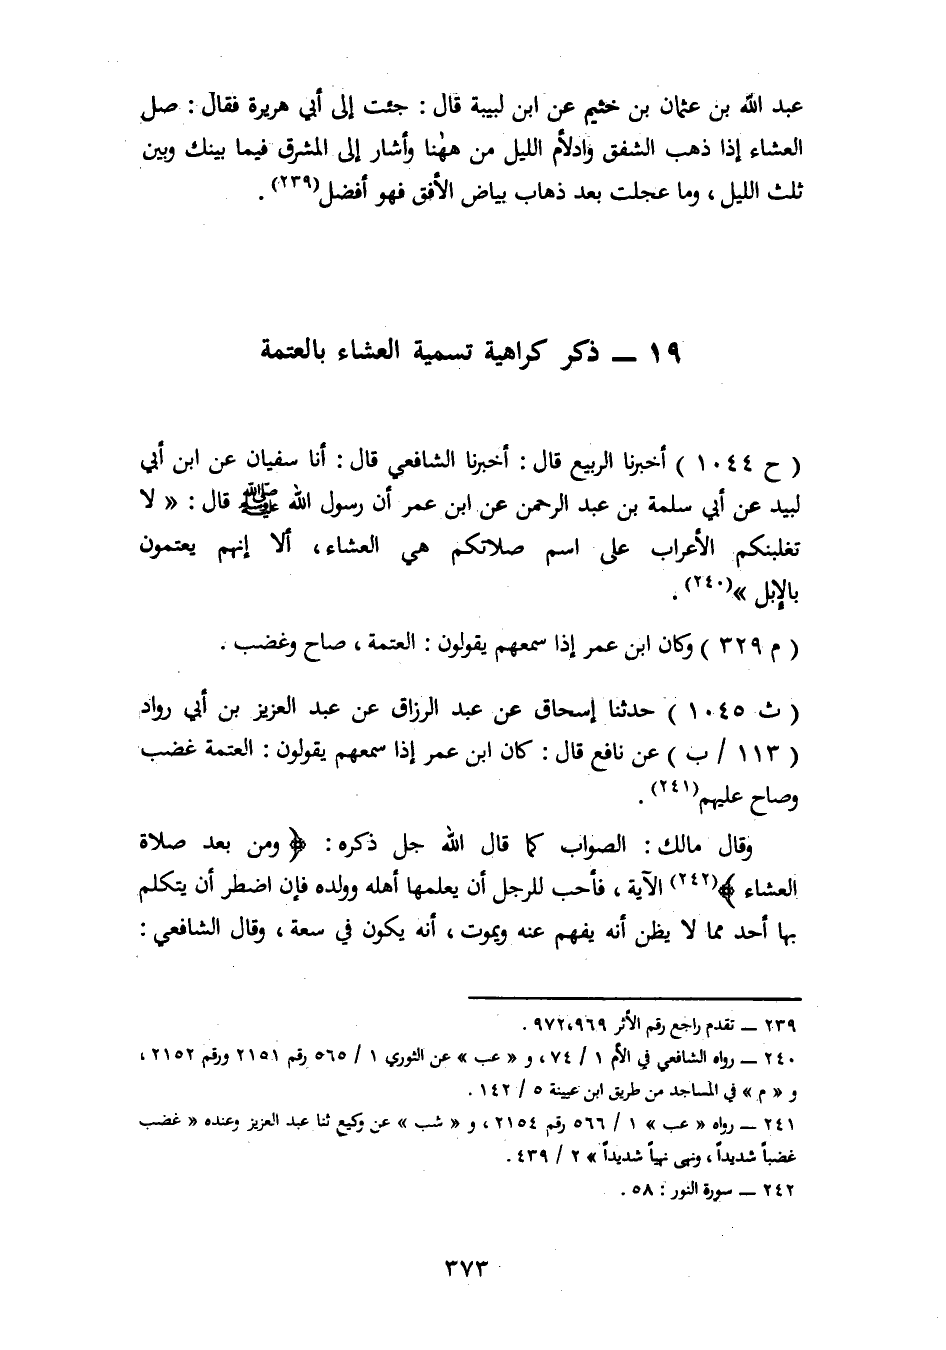 عبد الله بن عثمان بن خثيم عن ابن لبيبة قال : جئت إلى أبي هريرة فقال : صل
العشاء إذا ذهب الشفق وادلأم الليل من ههٰنا وأشار إلى المشرق فيما بينك وبين
ثلث الليل ، وما عجلت بعد ذهاب بياض الأفق فهو أفضل(٢٣٩) .
١٩ ــ ذكر كراهية تسمية العشاء بالعتمة
( ح ١٠٤٤ ) أخبرنا الربيع قال : أخبرنا الشافعي قال : أنا سفيان عن ابن أبي
لبيد عن أبي سلمة بن عبد الرحمن عن ابن عمر أن رسول الله ﷺ قال : « لا
تغلبنكم الأعراب على اسم صلاتكم هي العشاء، ألا إنهم يعتمون
بالإبل »(٢٤٠) .
( م ٣٢٩ ) وكان ابن عمر إذا سمعهم يقولون : العتمة ، صاح وغضب .
( ث ١٠٤٥ ) حدثنا إسحاق عن عبد الرزاق عن عبد العزيز بن أبي رواد
( ١١٣ / ب ) عن نافع قال : كان ابن عمر إذا سمعهم يقولون : العتمة غضب
وصاح عليهم(٢٤١) .
وقال مالك : الصواب كما قال الله جل ذكره : ﴿ ومن بعد صلاة
العشاء ﴾(٢٤٢) الآية ، فأحب للرجل أن يعلمها أهله وولده فإن اضطر أن يتكلم
بها أحد مما لا يظن أنه يفهم عنه ويموت ، أنه يكون في سعة ، وقال الشافعي :
٢٣٩ ــ تقدم راجع رقم الأثر ٩٧٢،٩٦٩ .
٢٤٠ ــ رواه الشافعي في الأم ١ / ٧٤ ، و « عب » عن الثوري ١ / ٥٦٥ رقم ٢١٥١ ورقم ٢١٥٢ ،
و « م » في المساجد من طريق ابن عيينة ٥ / ١٤٢ .
٢٤١ ــ رواه « عب » ١ / ٥٦٦ رقم ٢١٥٤ ، و « شب » عن وكيع ثنا عبد العزيز وعنده « غضب
غضباً شديداً ، ونهى نهياً شديداً » ٢ / ٤٣٩ .
٢٤٢ ــ سورة النور : ٥٨ .
٣٧٣